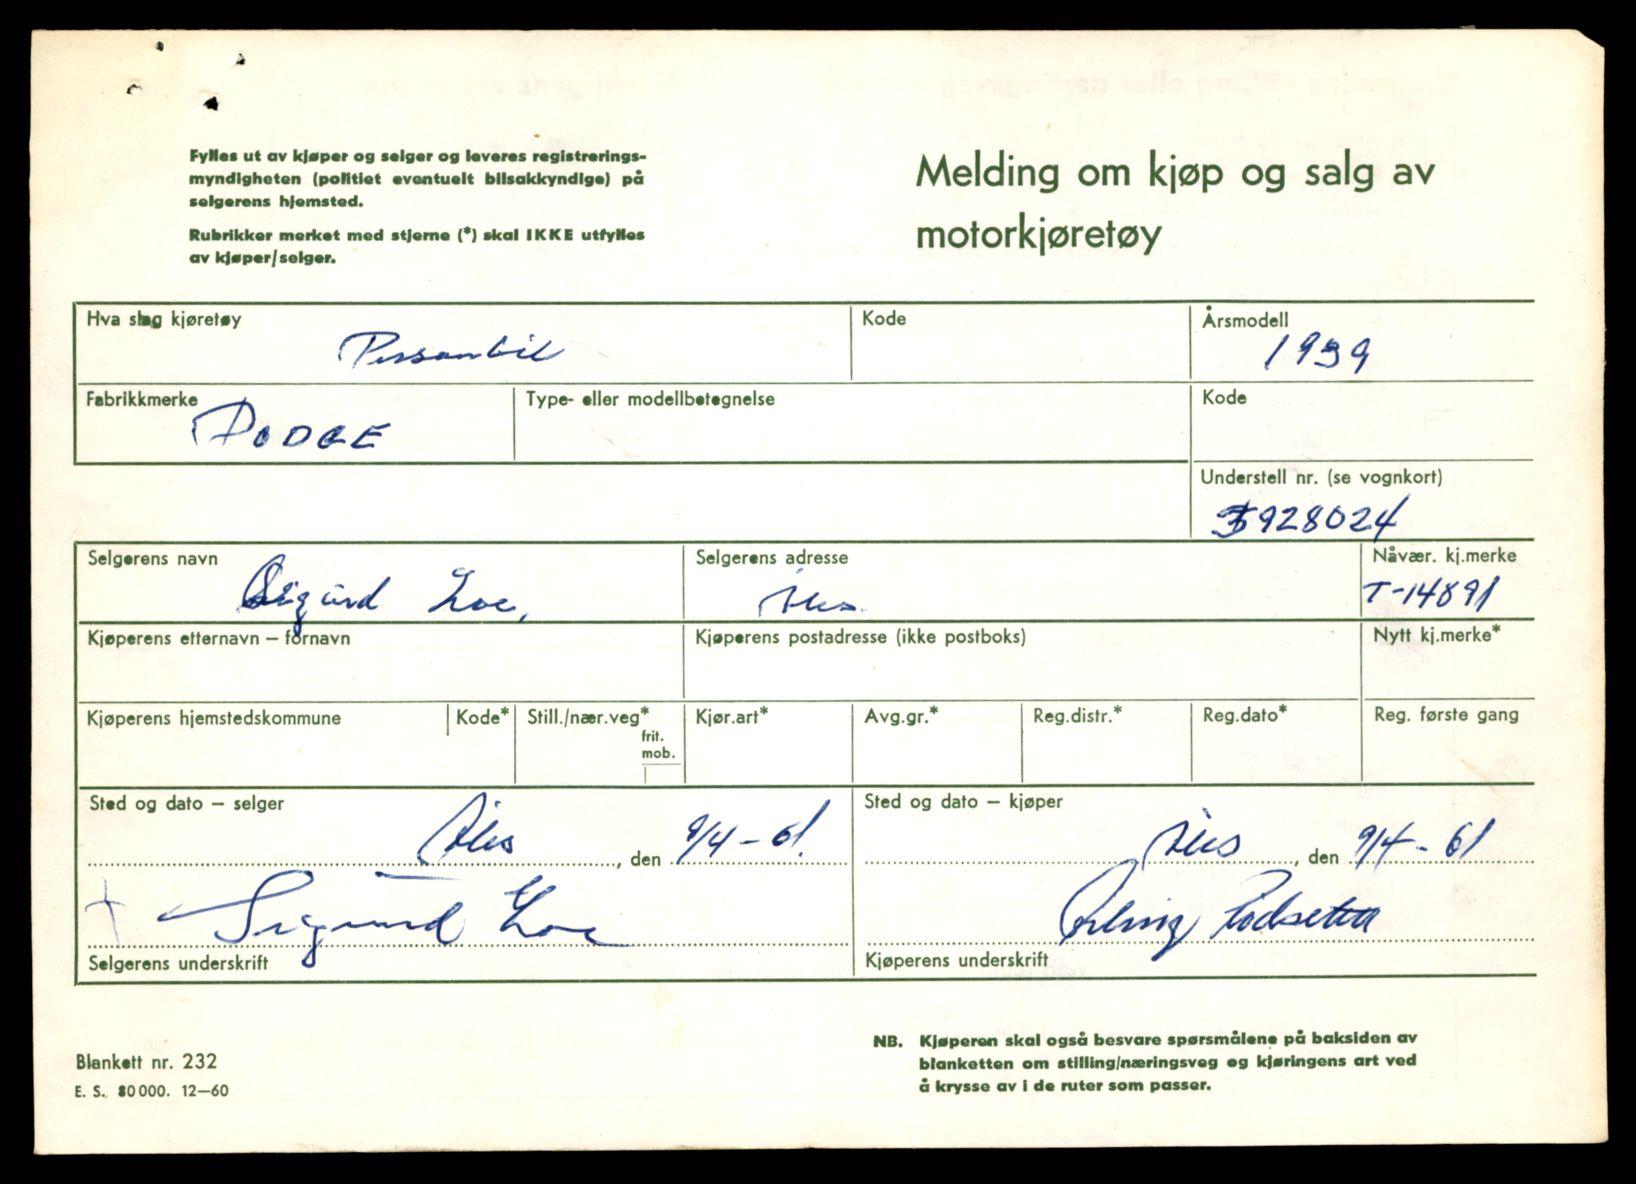 Fylles ut av kjøper og selger og leveres registrerings-
myndigheten (politiet eventuelt bilsakkyndige) på
selgerens hjemsted.
Rubrikker merket med stjerne (*) skal IKKE utfylles
av kjøper/selger.
Melding om kjøp og salg av
motorkjøretøy
Hva slag kjøretøy
Personbil
Kode
Årsmodell
1939
Fabrikkmerke
DODGE
Type- eller modellbetegnelse
Kode
Understell nr. (se vognkort)
928024
Selgerens navn
Sigurd Loe,
Selgerens adresse
Åles
Nåvær. kj.merke
T-14891
Kjøperens etternavn – fornavn
Kjøperens postadresse (ikke postboks)
Nytt kj.merke*
Kjøperens hjemstedskommune
Kode*
Still./nær.veg*
frit.
mob.
Kjør.art*
Avg.gr.*
Reg.distr.*
Reg.dato*
Reg. første gang
Sted og dato – selger
Åles, den 9/4-61.
Sted og dato – kjøper
Åles, den 9/4-61
Sigurd Loe
Selgerens underskrift
Erling
Kjøperens underskrift
Blankett nr. 232
E. S. 80000. 12–60
NB. Kjøperen skal også besvare spørsmålene på baksiden av
blanketten om stilling/næringsveg og kjøringens art ved
å krysse av i de ruter som passer.